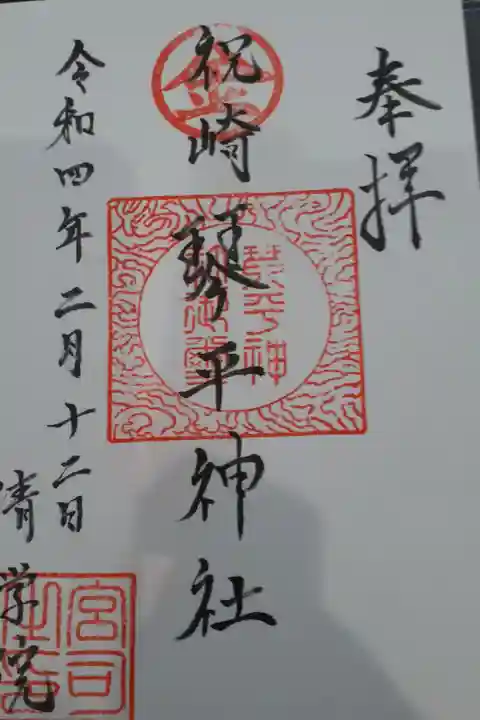 奉拝
祝崎琴平神社
令和四年二月十二日
清学院
金
琴平神
宮司